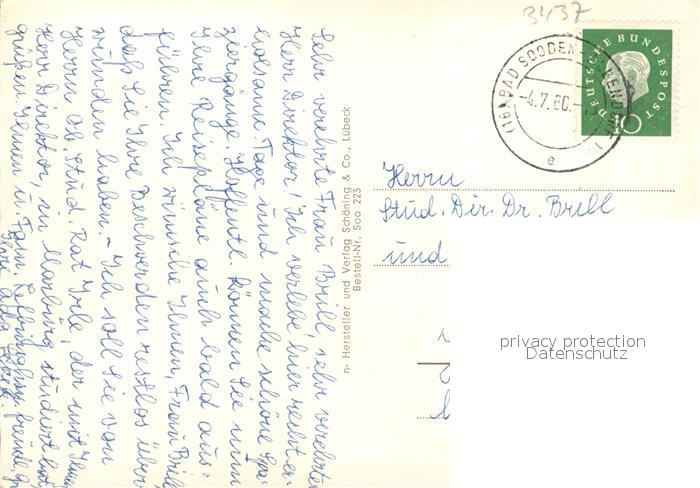 3437
DEUTSCHE BUNDESPOST
10
(16) BAD SOODEN-ALLENDORF
-4.7.60.-
e
Sehr verehrte Frau Brill, sehr verehrter
Herr Direktor! Ich verlebe hier recht er-
holsame Tage und mache schöne Spa-
ziergänge. Hoffentl. können Sie nun
Ihre Reisepläne auch bald aus-
führen. Ich wünsche Ihnen, Frau Brill
daß Sie Ihre Beschwerden restlos über-
wunden haben. - Ich soll Sie von
Herrn Ob. Stud. Rat Irle, der mit Ihnen,
Herr Direktor, in Marburg studiert hat,
grüßen. Ihnen u. Fam. freundl.
Ihre
n- Hersteller und Verlag Schöning & Co., Lübeck
Bestell-Nr. Soo 223
Herrn
Stud. Dir. Dr. Brill
und
privacy protection
Datenschutz